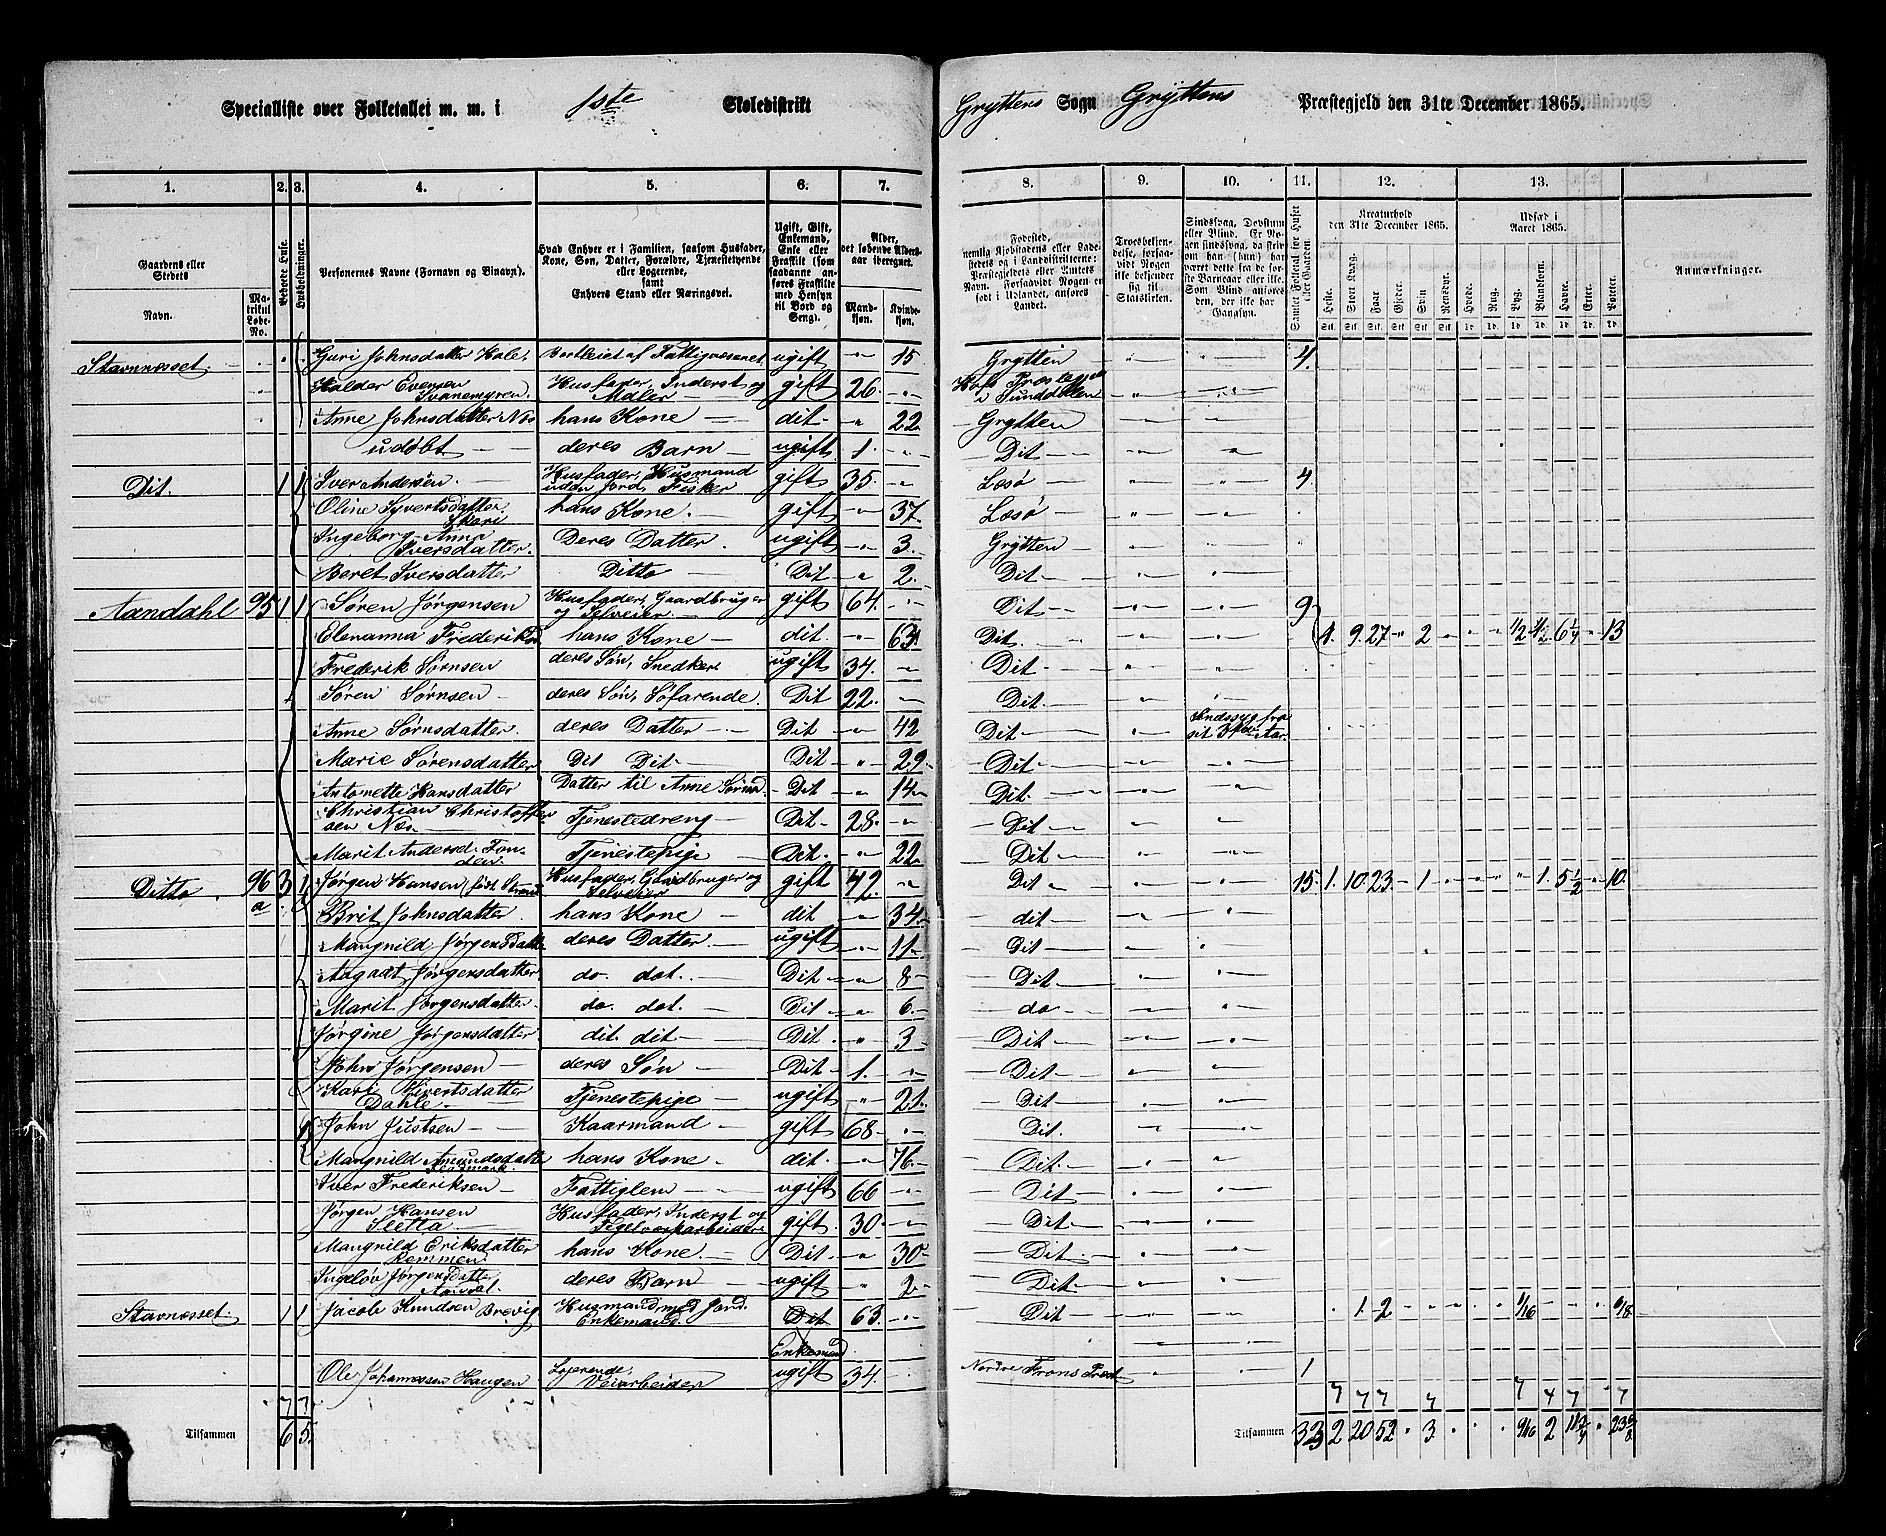 Specialliste over Folketallet m. m. i 1ste Skoledistrikt Gryttens Sogn Gryttens Præstegjeld den 31te December 1865.
1. 2. 3. 4. 5. 6. 7. 8. 9. 10. 11. 12. 13.
Gaardens eller Stedets Navn. Matrikul Løbe-No. Beboede Huse. Husholdninger. Personernes Navne (Fornavn og Binavn). Hvad Enhver er i Familien, saasom Husfader, Kone, Søn, Datter, Forældre, Tjenestetyende eller Logerende, samt Enhvers Stand eller Næringsvei. Ugift, Gift, Enkemand, Enke eller Fraskilt (som saadanne anføres Fraskilte med Hensyn til Bord og Seng). Alder, det løbende Aldersaar iberegnet. Mandkøn. Kvindekøn.
Fødested, nemlig Kjøbstadens eller Ladestedets og i Landdistrikterne: Præstegjeldets eller Amtets Navn. Forsaavidt Nogen er født i Udlandet, anføres Landet. Troesbekjendelse, forsaavidt Nogen ikke bekjender sig til Statskirken. Sindssvag, Døvstum eller Blind. Samlet Folketal for Huset eller Gaarden. Kreaturhold den 31te December 1865. Heste. Stort Kvæg. Faar. Gjeder. Svin. Rensdyr. Udsæd i Aaret 1865. Hvede. Rug. Byg. Blandkorn. Havre. Erter. Poteter. Anmærkninger.
Stavnæsset. Guri Johnsdatter Hole. Bortleiet af Fattigvæsenet ugift 15 Grytten 4.
Halder Evensen Svanemyren. Husfader, Inderst og Maler gift 26. i Sunddalen
Anne Johnsdatter Næs hans Kone dit 22 Grytten
udøbt deres Barn ugift 1. Dit
Dit. 1 1 Iver Andersen. Husfader, Husmand uden Jord, Fisker gift 35. Læsø 4
Oline Syvertsdatter hans Kone. gift 37. Læsø
Ingeborg Anna Iversdatter. Deres Datter. ugift 3. Grytten
Beret Iversdatter Ditto Dit 2. Dit
Aandahl 95 1 1 Søren Jørgensen Husfader, Gaardbruger og Selveier. gift 64. Dit 9
Elenanna hans Kone dit. 63. Dit. 1. 9. 27 2 1/2 1/2 6 1/4 13
Frederik Sørnsen deres Søn, Snedker ugift 34. Dit
Søren Sørnsen deres Søn, Søfarende. Dit 22. Dit.
Anne Sørnsdatter. deres Datter Dit 42 Dit Sindssyg fra sit Aar.
Marie Sørensdatter Dit Dit Dit 29 Dit
Antonette Hansdatter Datter til Anne Sørnsd. Dit 14 Dit.
Christian Christoffersen Næs Tjenestedreng Dit 28. Dit
Marit Andersd. Tjenestepige Dit. 22 Dit
Ditto. 96 a 3 1 Jørgen Hansen Husfader, Gaardbruger og Selveier gift 42. Dit 15. 1. 10. 23. 1 1. 5 1/2 10.
Brit Johnsdatter. hans Kone dit 34 dit
Mangnild Jørgensdatter deres Datter ugift 11 Dit
Aagaat Jørgensdatter do. dot. Dit 8 Dit
Marit Jørgensdatter do. dot. Dit 6. do
Jørgine Jørgensdatter dit. dit Dit 3 Dit
John Jørgensen deres Søn Dit 1. Dit
Kari Sivertsdatter Dahle. Tjenestepige ugift 21. Dit
John Justsen Kaarmand gift 68 Dit
Mangnild Amundsdatter hans Kone dit. 76. Dit.
Iver Frederiksen Fattiglem ugift 66 Dit
Jørgen Hansen Sletta Husfader, Inderst og gift 30 Dit
Mangnild Eriksdatter Remmen hans Kone. Dit 30 Dit
Jørgensdatter deres Barn ugift 2 Dit
Stavnæsset. 1 1 Jacob Knudsen Brevig Husmand med Jord. Enkemand. Dit 63. Dit 1. 2 1/16 6/8
Enkemand.
Ole Johannessen Haugen Logerende Veiarbeider ugift 34. Nordre Frons Præst 1
7 7 7 7 7 7 7 4 7 7
Tilsammen 6 5. Tilsammen 33 2 20 52 3 9/16 2 11 3/4 23 6/8